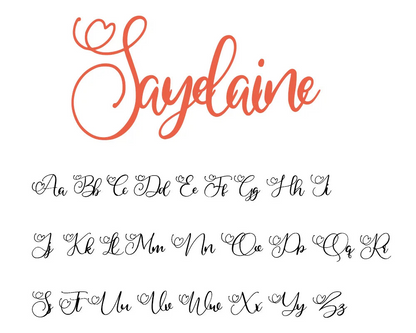 Saydaine
Aa Bb Cc Dd Ee Ff Gg Hh Ii
Jj Kk Ll Mm Nn Oo Pp Qq Rr
Ss Tt Uu Vv Ww Xx Yy Zz